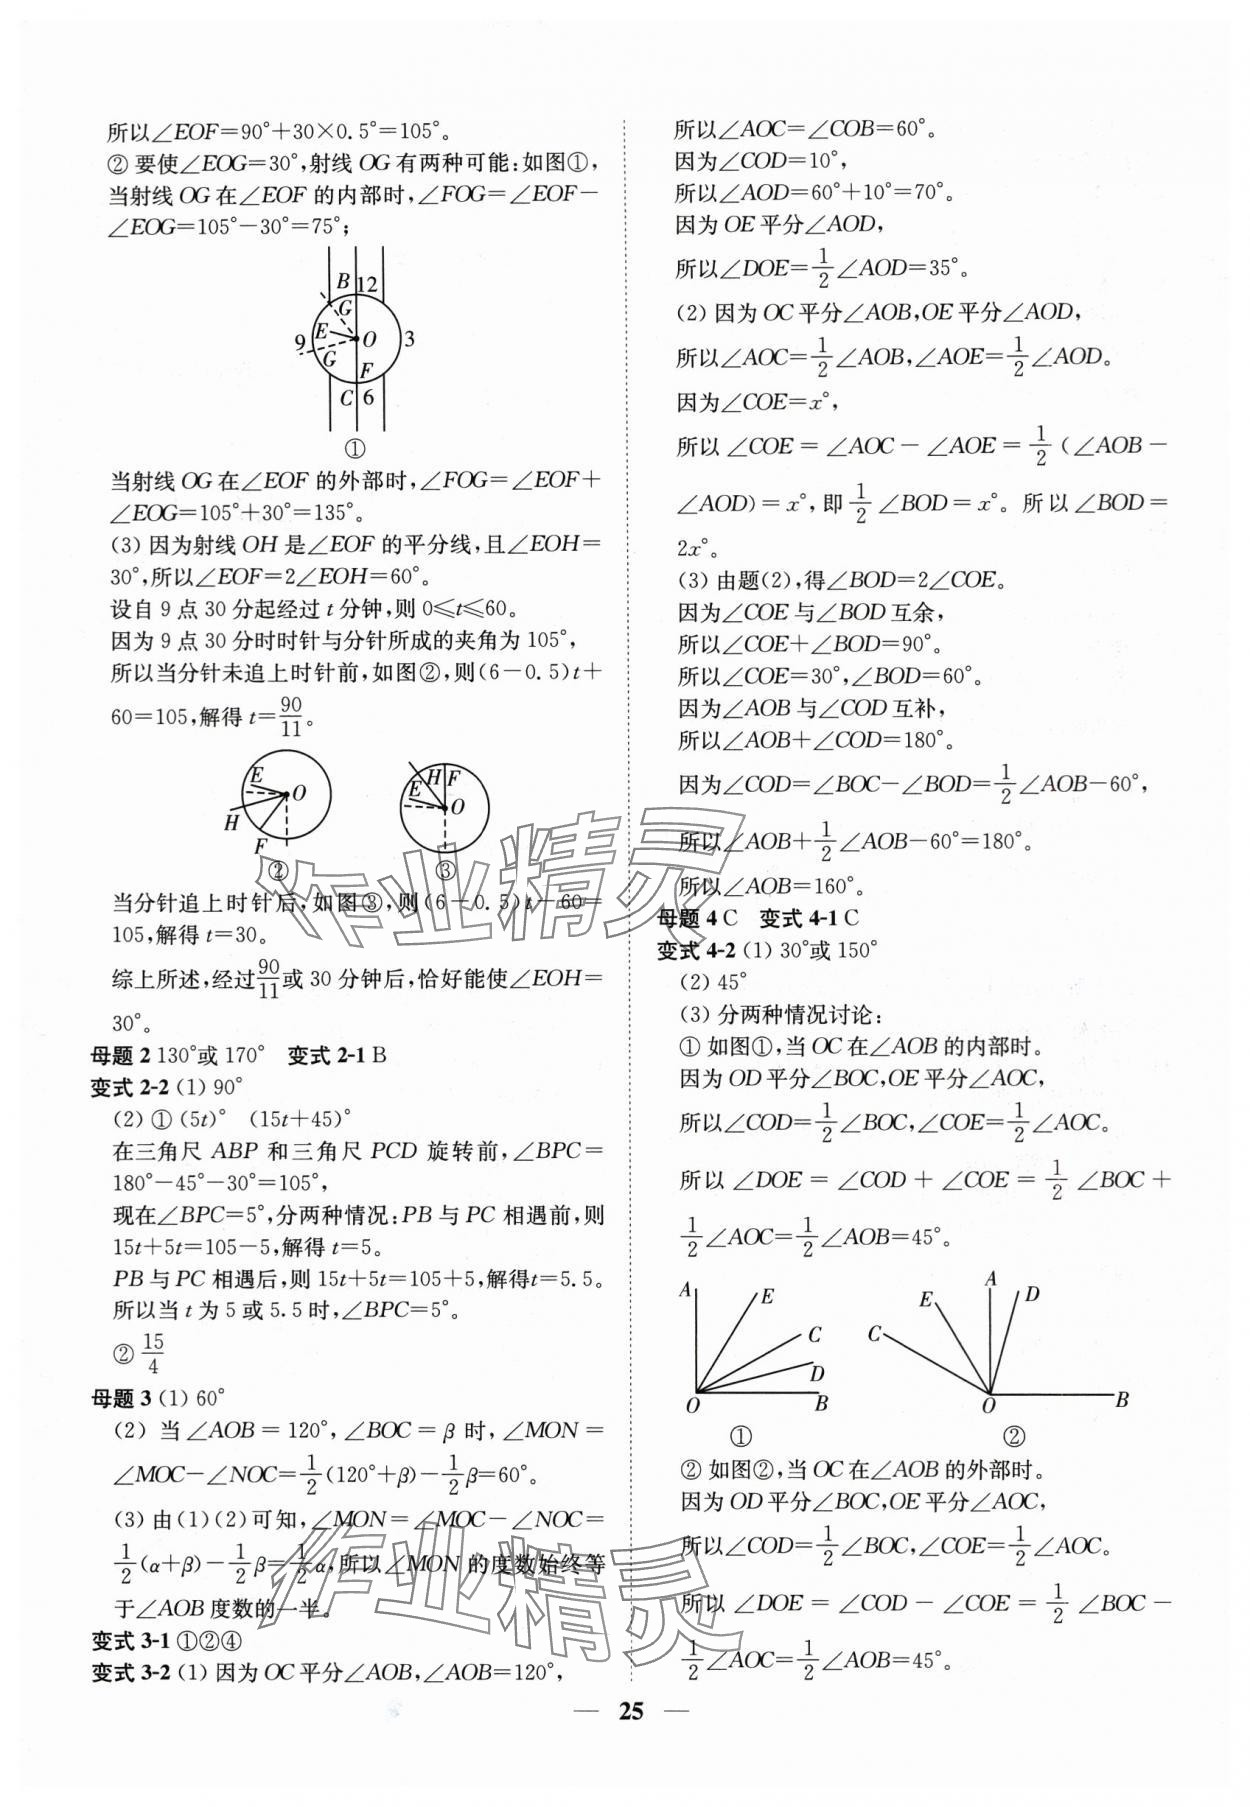 所以∠EOF=90°+30×0.5°=105°。
② 要使∠EOG=30°,射线 OG 有两种可能:如图①,
当射线 OG 在∠EOF 的内部时,∠FOG=∠EOF-
∠EOG=105°-30°=75°;
B 12
G
E
9 O 3
G
F
C 6
①
当射线 OG 在∠EOF 的外部时,∠FOG=∠EOF+
∠EOG=105°+30°=135°。
(3) 因为射线 OH 是∠EOF 的平分线,且∠EOH=
30°,所以∠EOF=2∠EOH=60°。
设自 9 点 30 分起经过 t 分钟,则 0≤t≤60。
因为 9 点 30 分时时针与分针所成的夹角为 105°,
所以当分针未追上时针前,如图②,则(6-0.5)t+
60=105,解得 t=90/11。
E O H F
②
H F E O
③
当分针追上时针后,如图③,则(6-0.5)t-60=
105,解得 t=30。
综上所述,经过90/11或 30 分钟后,恰好能使∠EOH=
30°。
母题 2 130°或 170° 变式 2-1 B
变式 2-2 (1) 90°
(2) ① (5t)° (15t+45)°
在三角尺 ABP 和三角尺 PCD 旋转前,∠BPC=
180°-45°-30°=105°,
现在∠BPC=5°,分两种情况:PB 与 PC 相遇前,则
15t+5t=105-5,解得 t=5。
PB 与 PC 相遇后,则 15t+5t=105+5,解得t=5.5。
所以当 t 为 5 或 5.5 时,∠BPC=5°。
② 15/4
母题 3 (1) 60°
(2) 当∠AOB=120°,∠BOC=β 时,∠MON=
∠MOC-∠NOC=1/2(120°+β)-1/2β=60°。
(3) 由(1)(2)可知,∠MON=∠MOC-∠NOC=
1/2(α+β)-1/2β=1/2α,所以∠MON 的度数始终等
于∠AOB 度数的一半。
变式 3-1 ①②④
变式 3-2 (1) 因为 OC 平分∠AOB,∠AOB=120°,
所以∠AOC=∠COB=60°。
因为∠COD=10°,
所以∠AOD=60°+10°=70°。
因为 OE 平分∠AOD,
所以∠DOE=1/2∠AOD=35°。
(2) 因为 OC 平分∠AOB,OE 平分∠AOD,
所以∠AOC=1/2∠AOB,∠AOE=1/2∠AOD。
因为∠COE=x°,
所以∠COE=∠AOC-∠AOE=1/2(∠AOB-
∠AOD)=x°,即1/2∠BOD=x°。所以∠BOD=
2x°。
(3) 由题(2),得∠BOD=2∠COE。
因为∠COE 与∠BOD 互余,
所以∠COE+∠BOD=90°。
所以∠COE=30°,∠BOD=60°。
因为∠AOB 与∠COD 互补,
所以∠AOB+∠COD=180°。
因为∠COD=∠BOC-∠BOD=1/2∠AOB-60°,
所以∠AOB+1/2∠AOB-60°=180°。
所以∠AOB=160°。
母题 4 C 变式 4-1 C
变式 4-2 (1) 30°或 150°
(2) 45°
(3) 分两种情况讨论:
① 如图①,当 OC 在∠AOB 的内部时。
因为 OD 平分∠BOC,OE 平分∠AOC,
所以∠COD=1/2∠BOC,∠COE=1/2∠AOC。
所以∠DOE=∠COD+∠COE=1/2∠BOC+
1/2∠AOC=1/2∠AOB=45°。
A E C D O B
①
A E D C O B
②
② 如图②,当 OC 在∠AOB 的外部时。
因为 OD 平分∠BOC,OE 平分∠AOC,
所以∠COD=1/2∠BOC,∠COE=1/2∠AOC。
所以∠DOE=∠COD-∠COE=1/2∠BOC-
1/2∠AOC=1/2∠AOB=45°。
— 25 —
作业精灵
作业精灵